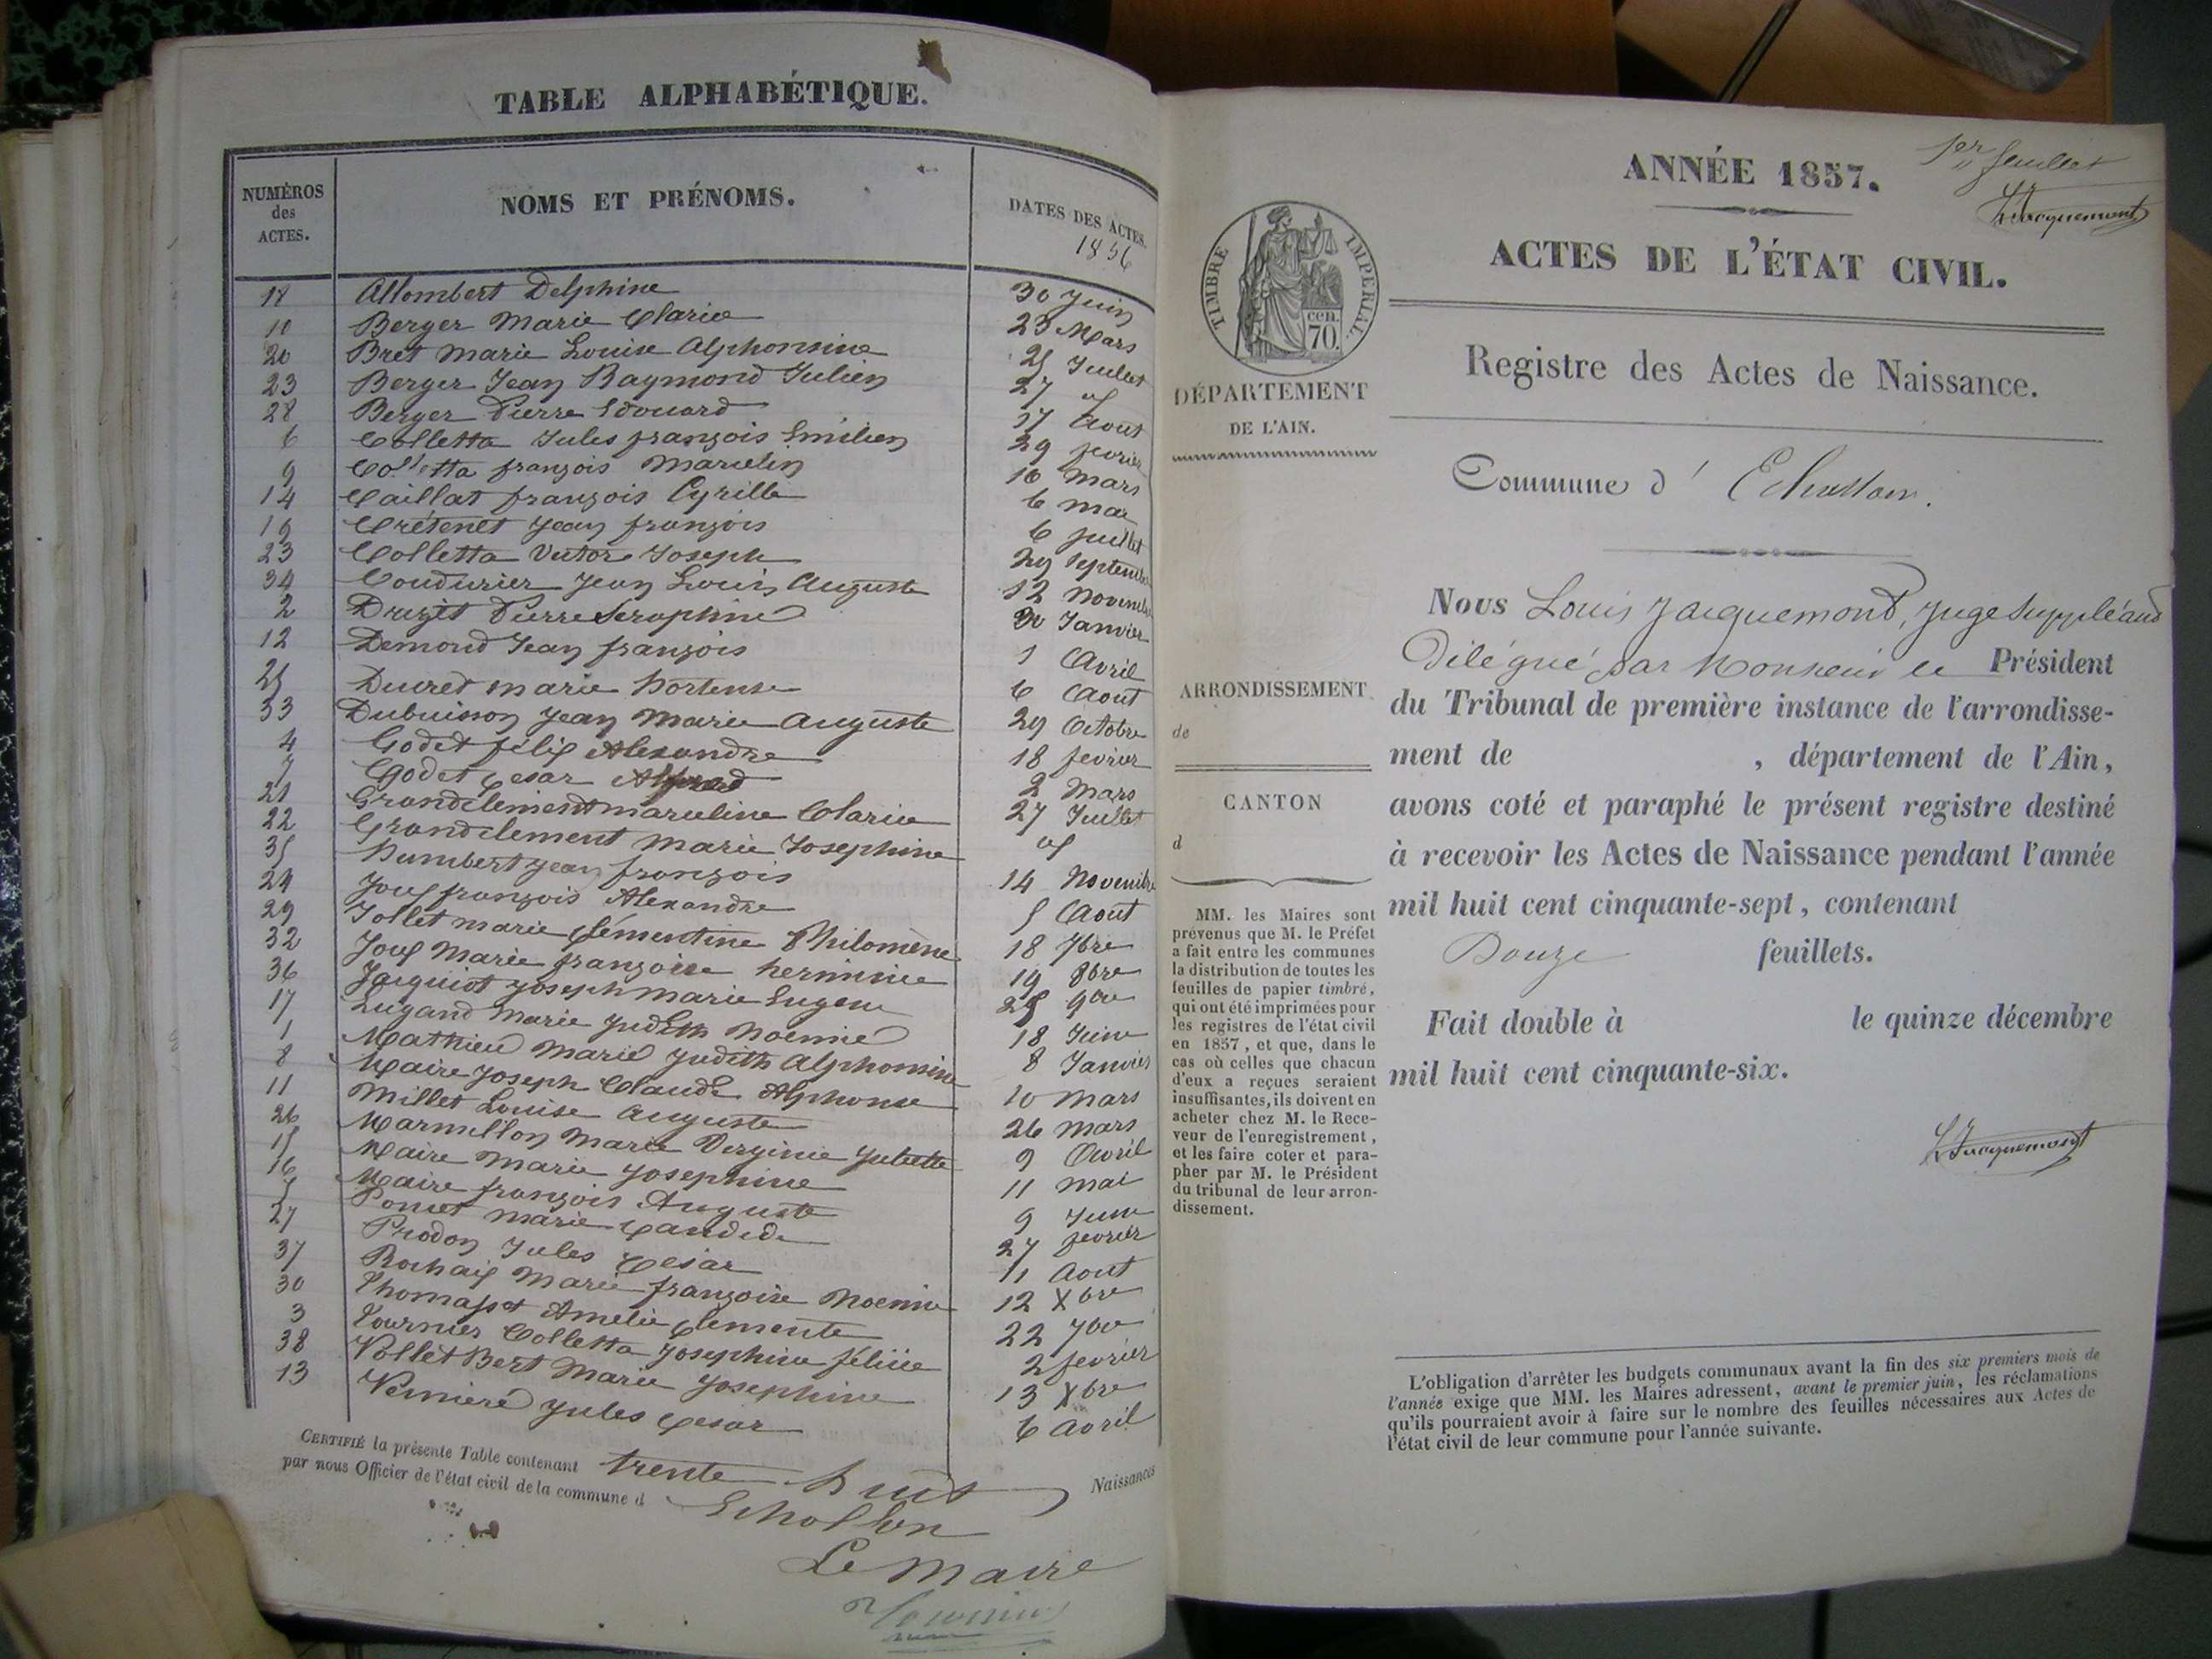 TABLE ALPHABÉTIQUE.
NUMÉROS des ACTES. NOMS ET PRÉNOMS. DATES DES ACTES. 1856
18 Allombert Delphine 30 Juin
10 Berger Marie Clarice 23 Mars
20 Bret Marie Louise Alphonsine 25 Juillet
23 Berger Jean Raymond Julien 27
28 Berger Pierre Edouard 17 Aout
6 Colletta Jules françois Emilien 29 fevrier
9 Colletta françois Marcelin 10 Mars
14 Caillat françois Cyrille 6 mai
19 Crétenet Jean françois 6 juillet
23 Colletta Victor Joseph 29 Septembre
34 Coudurier Jean Louis Auguste 12 Novembre
2 Druget Pierre Seraphine 30 Janvier
12 Demond Jean françois 1 Avril
25 Ducret Marie Hortense 6 Aout
33 Dubuisson Jean Marie Auguste 29 Octobre
4 Godet félix Alexandre 18 fevrier
7 Godet Cesar Alfred 2 Mars
21 Grandclement Marceline Clarice 27 Juillet
22 Grandclement Marie Josephine
35 Humbert Jean françois 14 Novembre
24 Joux françois Alexandre 5 Aout
29 Jollet Marie Clémentine Philomène 18 7bre
32 Joux Marie françoise herminie 19 8bre
36 Jacquiot Joseph Marie Eugene 25 9bre
17 Lugand Marie Judith Noémie 18 Juin
1 Mathieu Marie Judith Alphonsine 8 Janvier
8 Maire Joseph Claude Alphonse 10 Mars
11 Millet Louise Auguste 26 Mars
26 Marmillon Marie Virginie Juliette 9 Avril
15 Maire Marie Josephine 11 mai
16 Maire françois Auguste 9 Juin
5 Poncet Marie Candide 27 fevrier
27 Prodon Jules Cesar 11 Aout
37 Rochaix Marie françoise Noemie 12 Xbre
30 Thomasset Amelie Clemente 22 7bre
3 Tournier Colletta Josephine félicie 2 fevrier
38 Vollet Bert Marie Josephine 13 Xbre
13 Verniere Jules Cesar 6 avril
CERTIFIÉ la présente Table contenant trente huit Naissances
par nous Officier de l'état civil de la commune d Echallon
Le Maire
1er feuillet
LJacquemont
ANNÉE 1857.
ACTES DE L'ÉTAT CIVIL.
Registre des Actes de Naissance.
Commune d' Echallon.
TIMBRE IMPERIAL.
cen. 70.
DÉPARTEMENT
DE L'AIN.
ARRONDISSEMENT
de
CANTON
d
MM. les Maires sont
prévenus que M. le Préfet
a fait entre les communes
la distribution de toutes les
feuilles de papier timbré,
qui ont été imprimées pour
les registres de l'état civil
en 1857, et que, dans le
cas où celles que chacun
d'eux a reçues seraient
insuffisantes, ils doivent en
acheter chez M. le Rece-
veur de l'enregistrement,
et les faire coter et para-
pher par M. le Président
du tribunal de leur arron-
dissement.
Nous Louis Jacquemont, Juge Suppléant
Délégué par Monsieur le Président
du Tribunal de première instance de l'arrondisse-
ment de , département de l'Ain,
avons coté et paraphé le présent registre destiné
à recevoir les Actes de Naissance pendant l'année
mil huit cent cinquante-sept, contenant
Douze feuillets.
Fait double à le quinze décembre
mil huit cent cinquante-six.
LJacquemont
L'obligation d'arrêter les budgets communaux avant la fin des six premiers mois de
l'année exige que MM. les Maires adressent, avant le premier juin, les réclamations
qu'ils pourraient avoir à faire sur le nombre des feuilles nécessaires aux Actes de
l'état civil de leur commune pour l'année suivante.